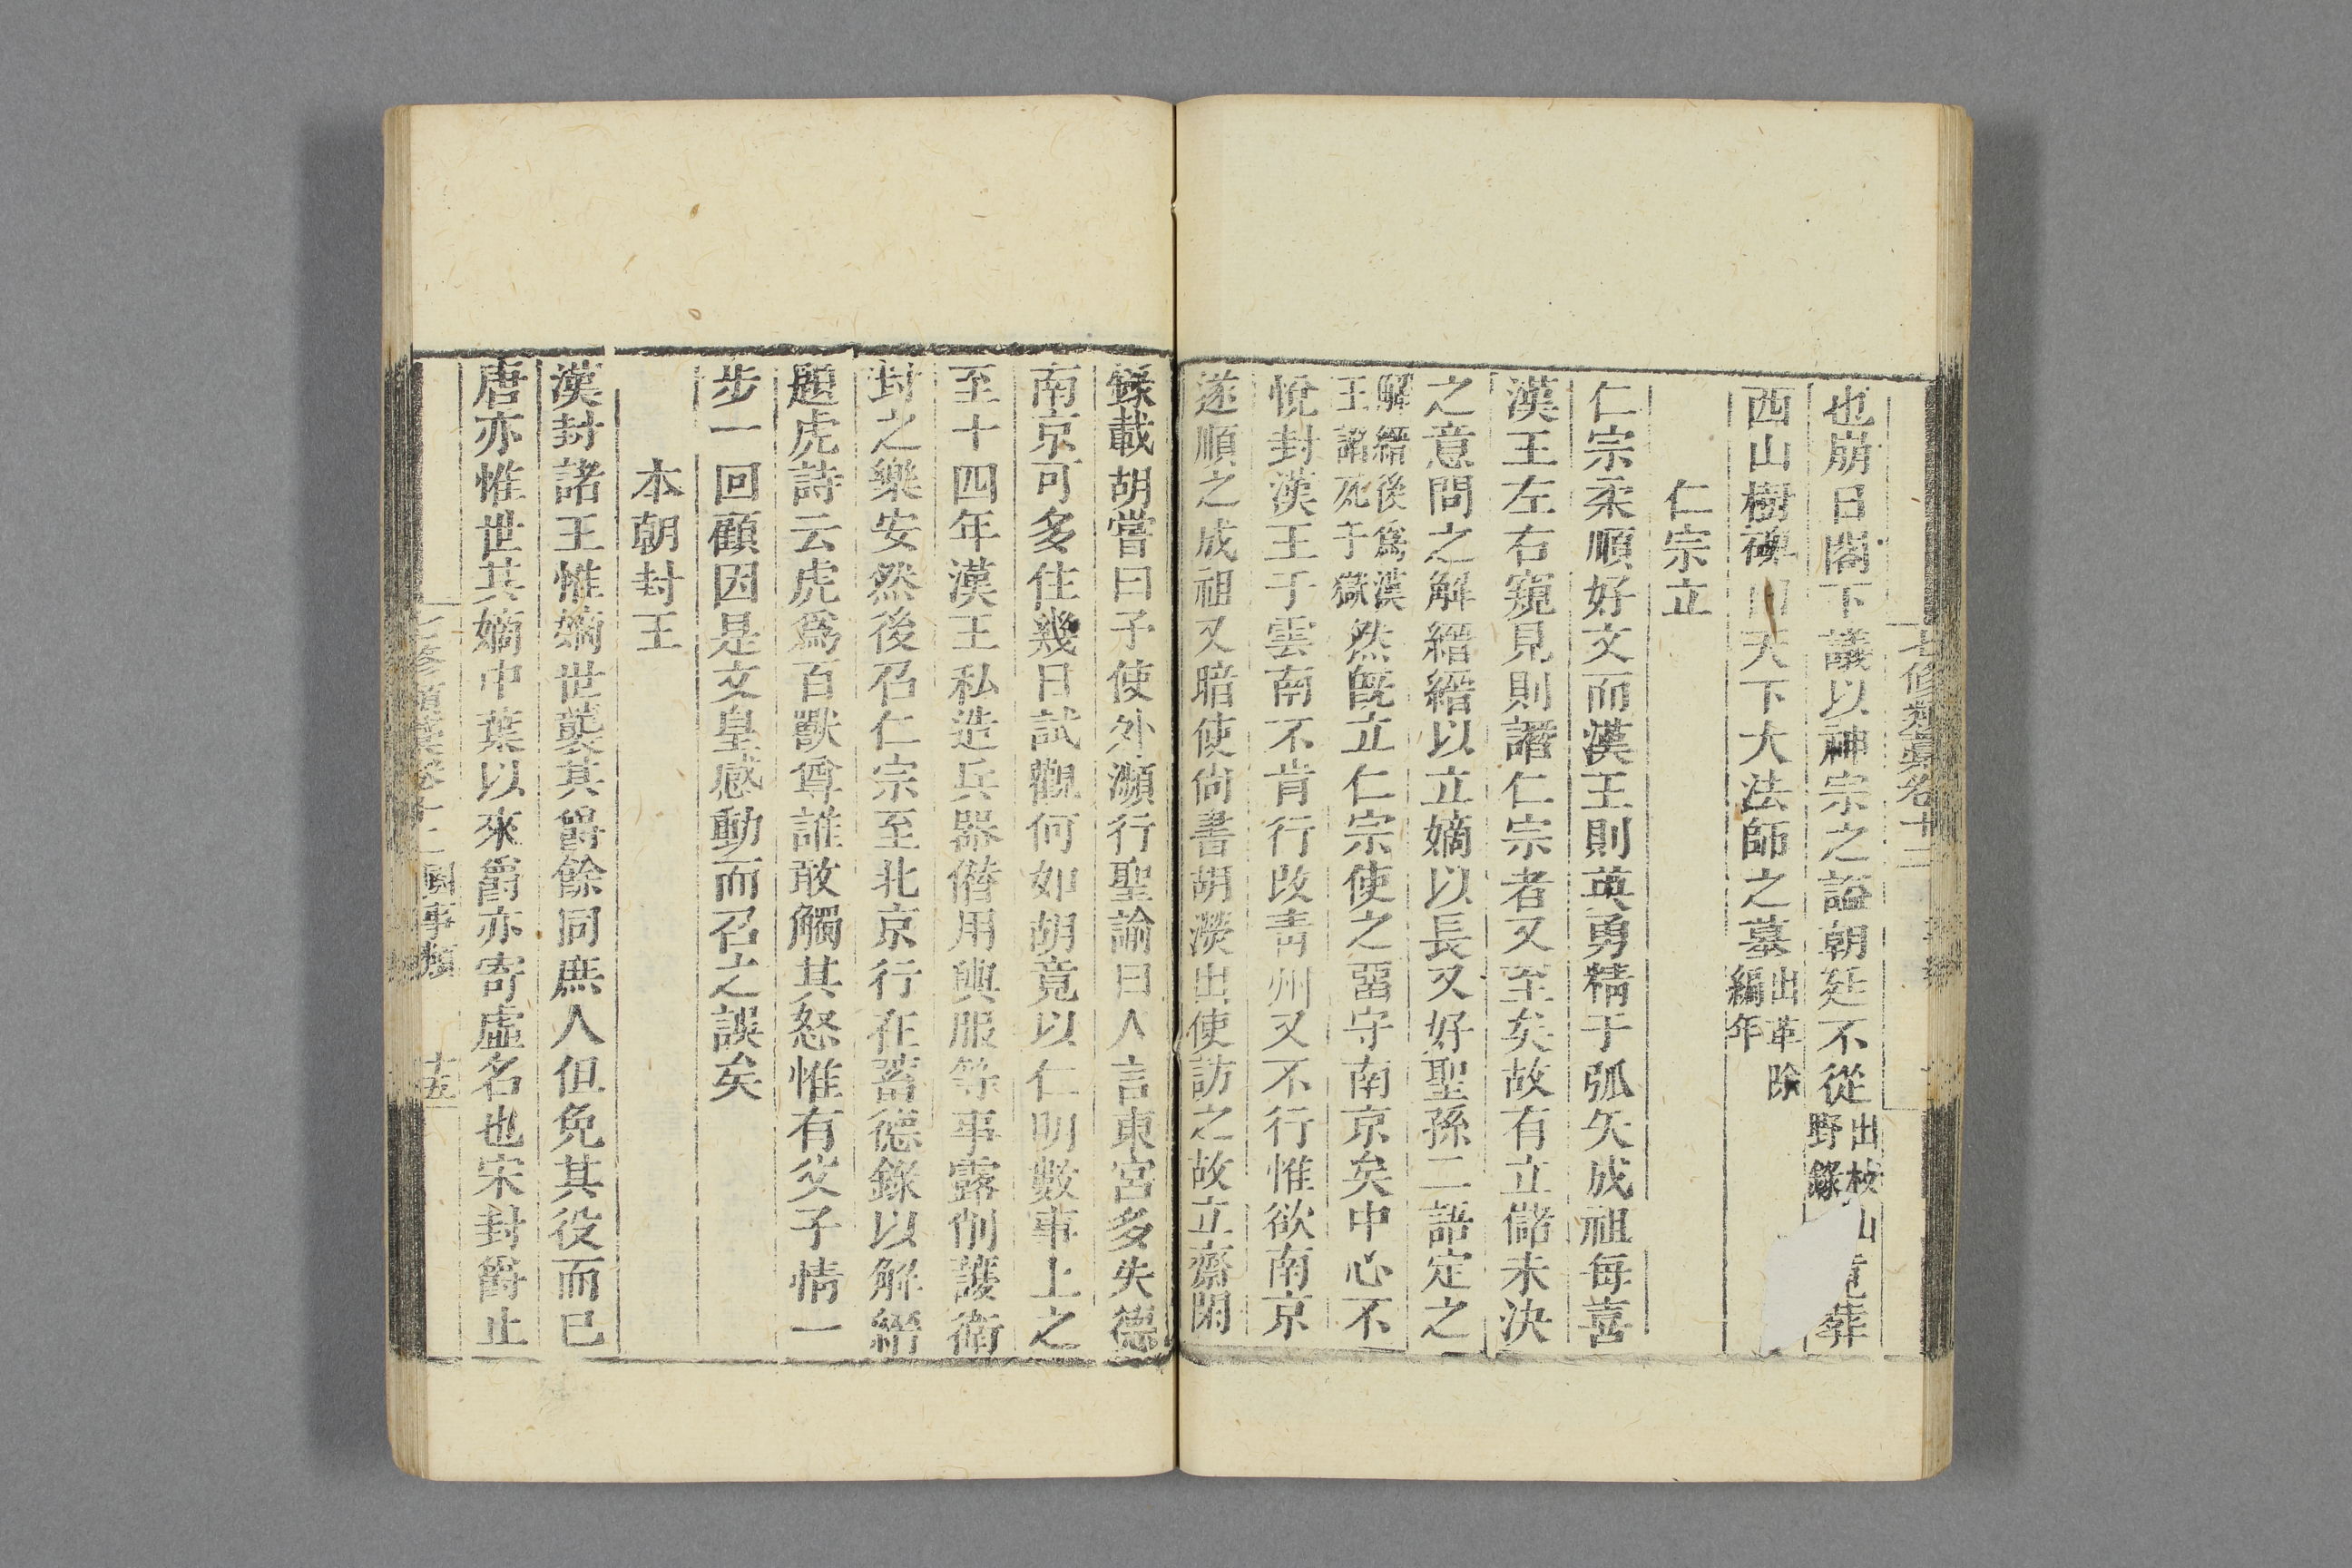 也崩日閣下議以神宗之謚朝廷不從出枝山葬野錄
西山樹碑曰天下大法師之墓出革除編年
仁宗立
仁宗柔順好文而漢王則英勇精于弧矢成祖每喜
漢王左右窺見則譖仁宗者又至矣故有立儲未決
之意問之解縉縉以立嫡以長又好聖孫二語定之
解縉後爲漢王譖死于獄然旣立仁宗使之畱守南京矣中心不
悅封漢王于雲南不肯行改青州又不行惟欲南京
遂順之成祖又暗使尚書胡濙出使訪之故立齋閑
錄載胡嘗曰予使外瀕行聖諭曰人言東宮多失德
南京可多住幾日試觀何如胡竟以仁明數事上之
至十四年漢王私造兵器僭用輿服等事露削護衛
封之樂安然後召仁宗至北京行在蓄德錄以解縉
題虎詩云虎爲百獸尊誰敢觸其怒惟有父子情一
步一回顧因是文皇感動而召之誤矣
本朝封王
漢封諸王惟嫡世襲其爵餘同庶人但免其役而已
唐亦惟世其嫡中葉以來爵亦寄虛名也宋封爵止
七修類稾卷十二 國事類 十五